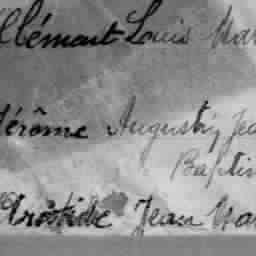 Clémont Louis Mar
Jérôme Augustin Jea
Baptis
Aristide Jean Mar